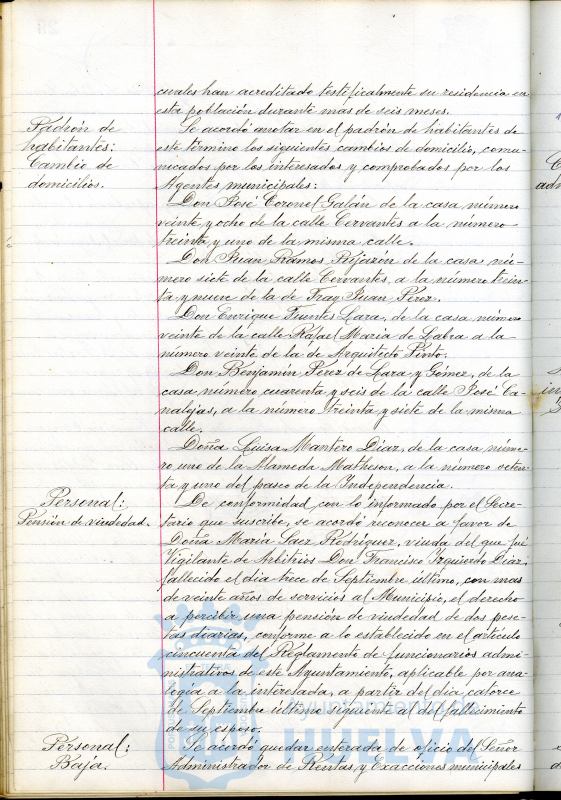 cuales han acreditado testificalmente su residencia en
esta población durante más de seis meses.
Padrón de
habitantes:
Cambio de
domicilios.
Se acordó anotar en el padrón de habitantes de
este término los siguientes cambios de domicilio, comu-
nicados por los interesados y comprobados por los
Agentes municipales:
Don José Coronel Galán de la casa número
veinte y ocho de la calle Cervantes a la número
treinta y uno de la misma calle.
Don Juan Ramos Rijazón de la casa nú-
mero siete de la calle Cervantes, a la número trein-
ta y nueve de la de Fray Juan Pérez.
Don Enrique Fuentes Lara, de la casa número
veinte de la calle Rafael Maria de Labra a la
número veinte de la de Arquitecto Pinto.
Don Benjamín Pérez de Lara y Gómez, de la
casa número cuarenta y seis de la calle José Ca-
nalejas, a la número treinta y siete de la misma
calle.
Doña Luisa Mantero Díaz, de la casa núme-
ro uno de la Alameda Matheson, a la número seten-
ta y uno del paseo de la Independencia.
Personal:
Pensión de viudedad.
De conformidad con lo informado por el Secre-
tario que suscribe, se acordó reconocer a favor de
Doña María Saez Rodríguez, viuda del que fué
Vigilante de Arbitrios Don Francisco Izquierdo Díaz,
fallecido el día trece de Septiembre último, con mas
de veinte años de servicios al Municipio, el derecho
a percibir una pensión de viudedad de dos pese-
tas diarias, conforme a lo establecido en el artículo
cincuenta del Reglamento de funcionarios admi-
nistrativos de este Ayuntamiento, aplicable por ana-
logía a la interesada, a partir del día catorce
de Septiembre último siguiente al del fallecimiento
de su esposo.
Personal:
Baja.
Se acordó quedar enterada de oficio del Señor
Administrador de Rentas y Exacciones municipales
Ayuntamiento de
HUELVA